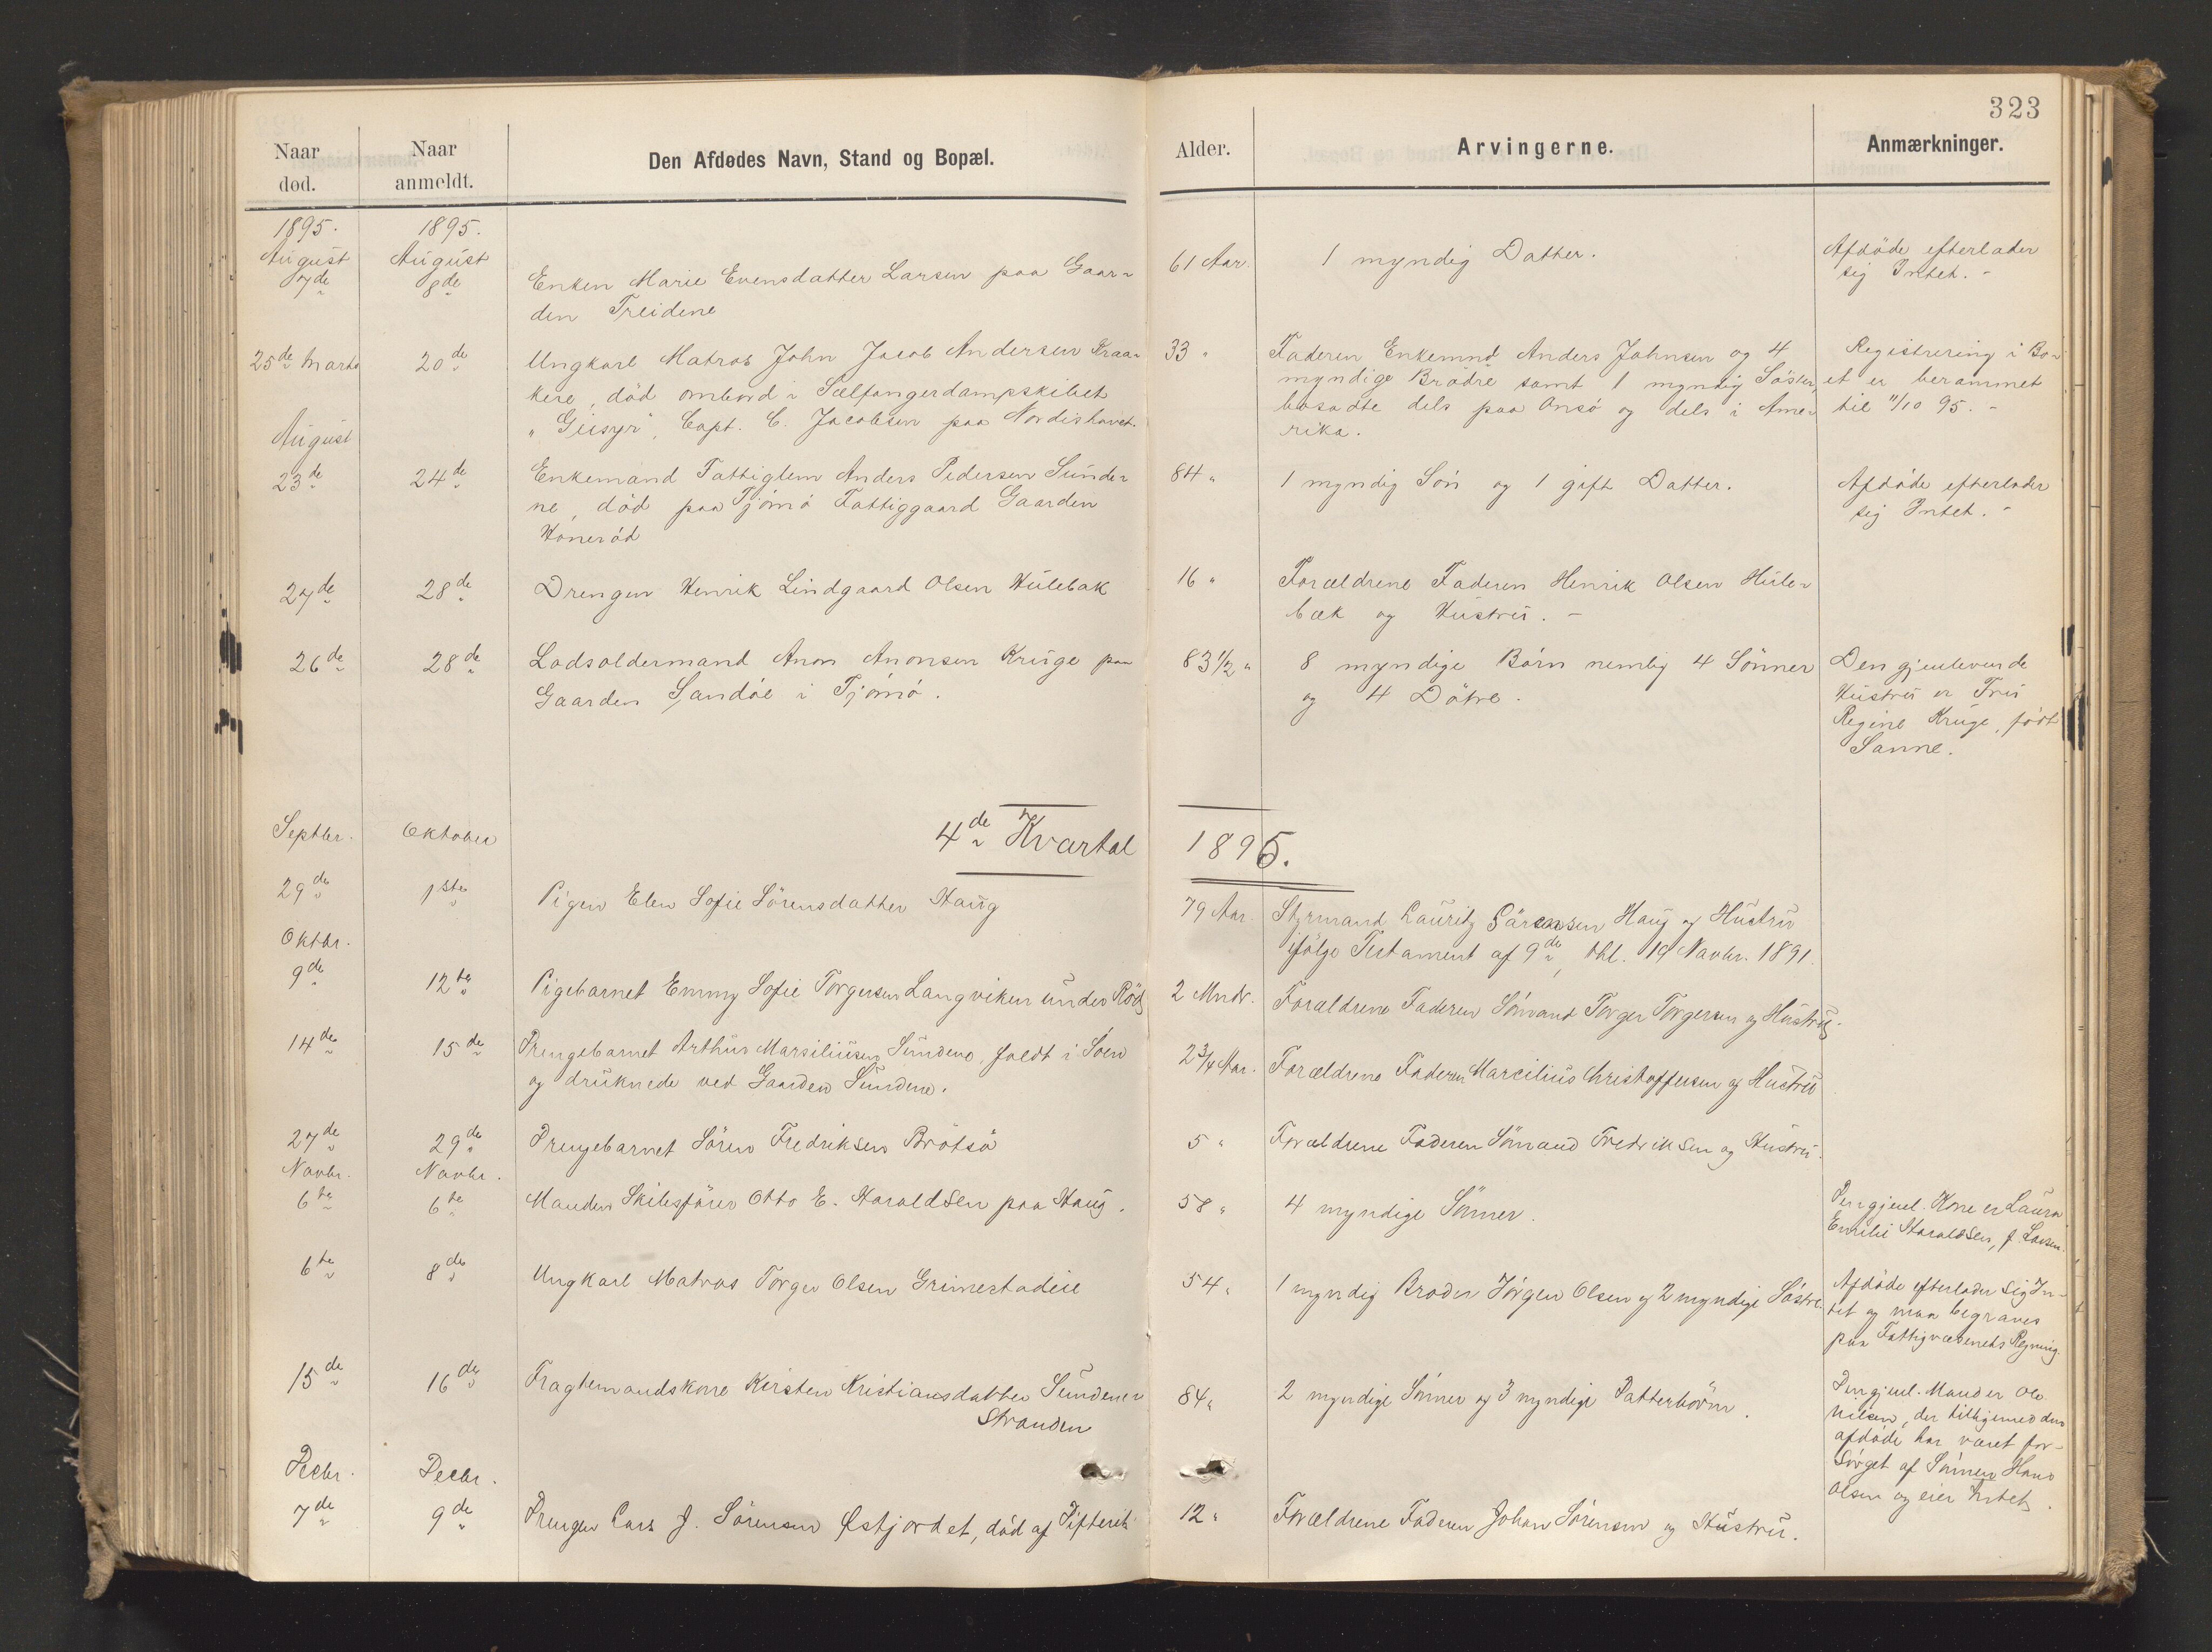 323
Naar død.
Naar anmeldt.
Den Afdødes Navn, Stand og Bopæl.
Alder.
Arvingerne.
Anmærkninger.
1895.
1895.
August
August
7de
8de
Enken Marie Evensdatter Larsen paa Gaar-
den Treidene
61 Aar.
1 myndig Datter.
Afdöde efterlader
sig Intet. -
25de Marts
20de
Ungkarl Matros John Jacob Andersen Kraa-
kere, död ombord i Sælfangerdampskibet
"Geisyr", Capt. C. Jacobsen paa Nordishavet.
33 "
Faderen Enkemnd Anders Johnsen og 4
myndige Brödre samt 1 myndig Söster,
bosadte dels paa Onsö og dels i Ame-
rika.
Registrering i Bo-
et er berammet
til 11/10 95. -
August
23de
24de
Enkemand Fattiglem Anders Pedersen Sunde-
ne, död paa Tjömö Fattiggaard Gaarden
Höneröd
84 "
1 myndig Sön og 1 gift Datter.
Afdöde efterlader
sig Intet. -
27de
28de
Drengen Henrik Lindgaard Olsen Hulebak
16 "
Forældrene Faderen Henrik Olsen Hule-
bæk og Hustru. -
26de
28de
Lodsoldermand Anon Anonsen Kruge paa
Gaarden Sandöe i Tjömö.
83 1/2 "
8 myndige Börn nemlig 4 Sönner
og 4 Dötre.
Den gjenlevende
Hustru er Fru
Regine Kruge, födt
Sanne.
4de Kvartal 1895.
Septbr.
Oktober
29de
1ste
Pigen Elen Sofie Sörensdatter Haug
79 Aar.
Styrmand Lauritz Sörensen Haug og Hustru
ifölge Testament af 9de, thl. 19 Novbr. 1891.
Oktbr.
9de
12te
Pigebarnet Emmy Sofie Torgersen Langviken under Röd
2 Mndr.
Forældrene Faderen Sömand Torger Torgersen og Hustru.
14de
15de
Drengebarnet Arthur Marsiliusen Sundene, faldt i Söen
og druknede ved Gaarden Sundene.
2 3/4 Aar.
Forældrene Faderen Marcilius Christoffersen og Hustru
27de
29de
Drengebarnet Sören Fredriksen Brötsö
5 "
Forældrene Faderen Sömand Fredriksen og Hustru.
Novbr.
Novbr.
6te
6te
Manden Skibsförer Otto E. Haraldsen paa Haug.
58 "
4 myndige Sönner.
Den gjenl. Kone er Laura
Emilie Haraldsen, f. Larsen.
6te
8de
Ungkarl Matros Torger Olsen Grimestadeie
54 "
1 myndig Broder Jörgen Olsen og 2 myndige Söstre.
Afdöde efterlader sig In-
tet og maa begraves
paa Fattigvæsenets Regning.
15de
16de
Fragtemandskone Kirsten Kristiansdatter Sundene
Stranden
84 "
2 myndige Sönner og 3 myndige Datterbörn.
Den gjenl. Mand er Ole
Nilsen, der tilligemed den
afdöde har været for-
sörget af Sönnen Hans
Olsen og eier Intet.
Decbr.
Decbr.
7de
9de
Drengen Carl J. Sörensen Østjordet, död af Difterit
12 "
Forældrene Faderen Johan Sörensen og Hustru.